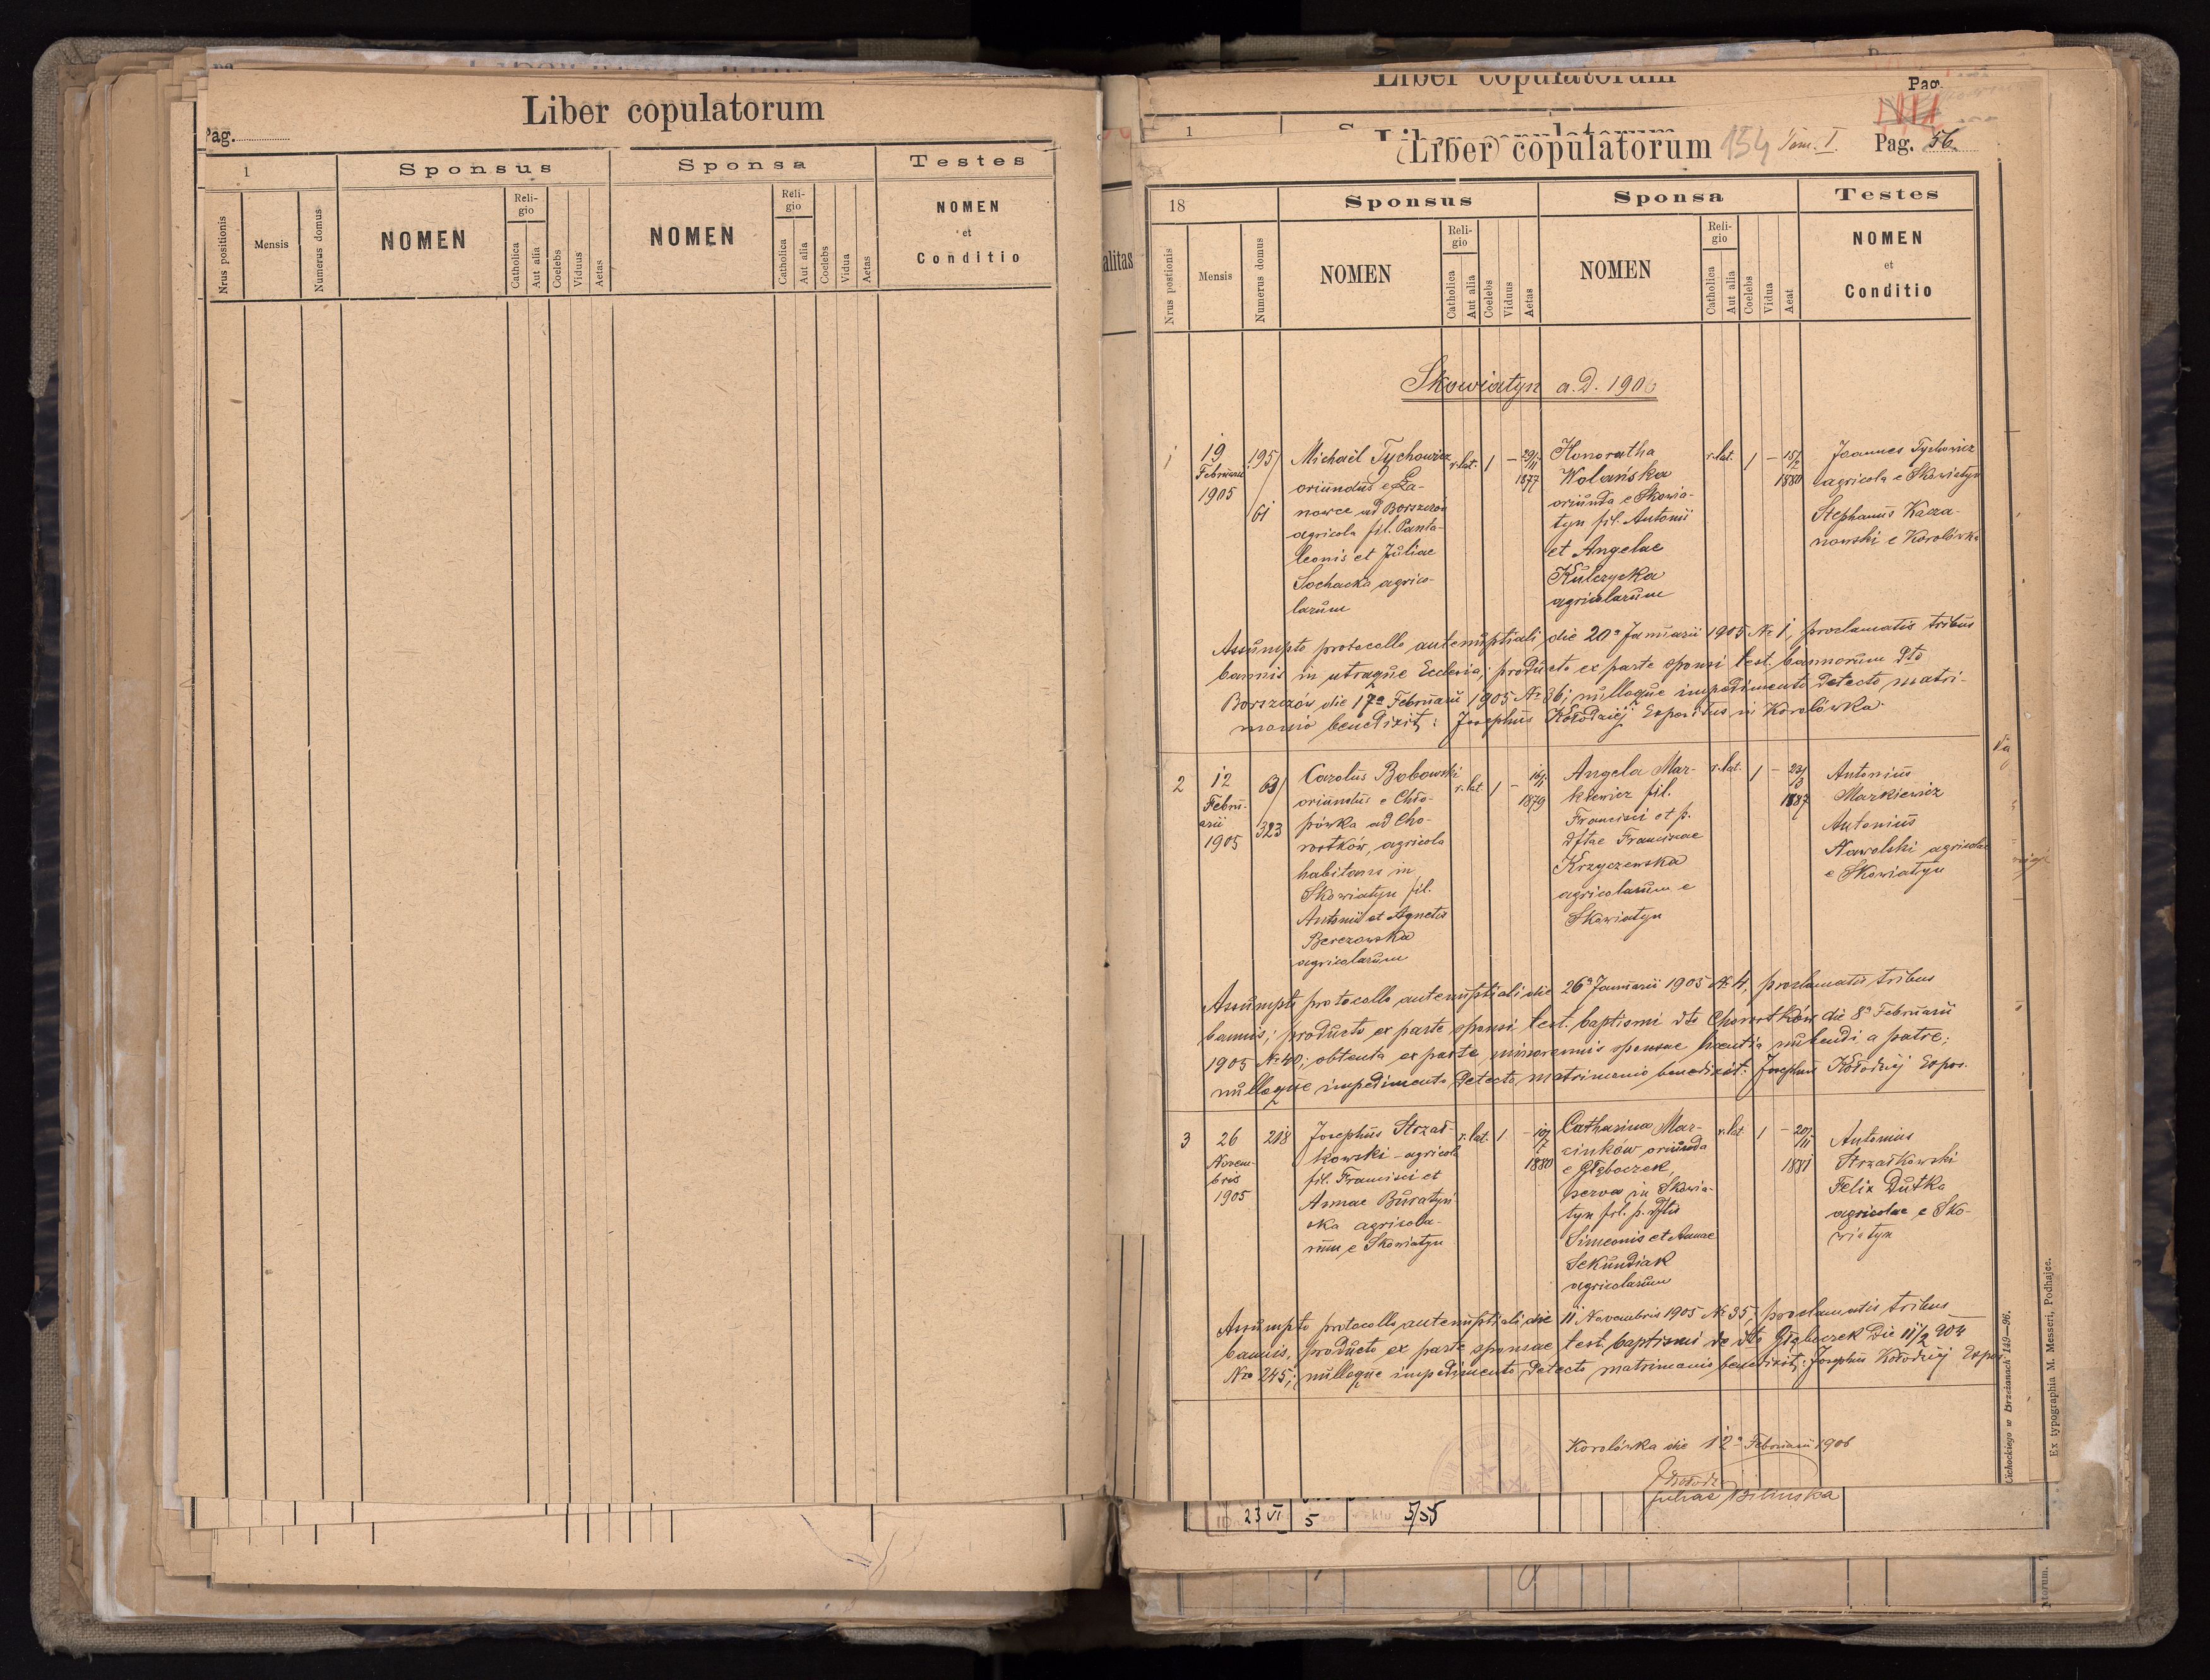 Liber copulatorum
Pag.
1
Sponsus
Sponsa
Testes
Nrus positionis
Mensis
Numerus domus
NOMEN
Religio
Catholica
Aut alia
Coelebs
Viduus
Aetas
NOMEN
Religio
Catholica
Aut alia
Coelebs
Vidua
Aetas
NOMEN
et
Conditio
alitas
Liber copulatorum
Pag.
1
Liber copulatorum 154 Tom. I. Pag. 56
18
Sponsus
Sponsa
Testes
Nrus postionis
Mensis
Numerus domus
NOMEN
Religio
Catholica
Aut alia
Coelebs
Viduus
Aetas
NOMEN
Religio
Catholica
Aut alia
Coelebs
Vidua
Aeat
NOMEN
et
Conditio
Skowiatyn a.D. 1906
1
19
Februarii
1905
195/
61
Michaël Tychowicz
oriundus e Ła-
nowce ad Borszczów
agricola fil. Panta-
leonis et Juliae
Sochacka agrico-
larum
r. lat. 1 – 29/11
1877
Honoratha
Wolańska
oriunda e Skowia-
tyn fil. Antonii
et Angelae
Kulczycka
agricolarum
r. lat. 1 – 15/2
1880
Joannes Tychowicz
agricola e Skowiatyn
Stephanus Kacza-
nowski e Korolówka
Assumpto protocollo antenuptiali die 20a Januarii 1905 Nr 1, proclamatis tribus
bannis in utraque Ecclesia; producto ex parte sponsi test. bannorum dto
Borszczów die 17a Februarii 1905 Nr 36; nulloque impedimento detecto matri-
monio benedixit: Josephus Kołodziej Expositus in Korolówka.
2
12
Febru-
arii
1905
63/
323
Carolus Bobowski
oriundus e Chło-
pówka ad Cho-
rostków, agricola
habitans in
Skowiatyn fil.
Antonii et Agnetis
Berezowska
agricolarum
r. lat. 1 –
1879
Angela Mar-
kiewicz fil.
Francisci et p.
dftae Franciscae
Krzyczewska
agricolarum e
Skowiatyn
r. lat. 1 – 23/3
1887
Antonius
Markiewicz
Antonius
Nawolski agricolae
e Skowiatyn
Assumpto protocollo antenuptiali die 26a Januarii 1905 Nr 4, proclamatis tribus
bannis; producto ex parte sponsi test. baptismi dto Chorostków die 8a Februarii
1905 Nr 40; obtenta ex parte minorennis sponsae licentia nubendi a patre;
nulloque impedimento detecto matrimonio benedixit: Josephus Kołodziej Expos.
3
26
Novem-
bris
1905
218
Josephus Strzał-
kowski – agricola
fil. Francisci et
Annae Buratyń-
ska agricola-
rum e Skowiatyn
r. lat. 1 –
1880
Catharina Mar-
cinków oriunda
e Głęboczek,
serva in Skowia-
tyn fil. p. dftis
Simeonis et Annae
Sekundiak
agricolarum
r. lat. 1 – 20/11
1881
Antonius
Strzałkowski
Felix Dutka
agricolae e Sko-
wiatyn
Assumpto protocollo antenuptiali die 11 Novembris 1905 Nr 35, proclamatis tribus
bannis, producto ex parte sponsae test. baptismi de dto Głęboczek die 11/2 904
Nro 245; nulloque impedimento detecto matrimonio benedixit: Josephus Kołodziej Expos
Korolówka die 12a Februarii 1906
JKołodziej
Juliae Bilińska
23 VI 5 5/55
Cichockiego w Brzeżanach 149—96.
Ex typographia M. Messeri, Podhajce.